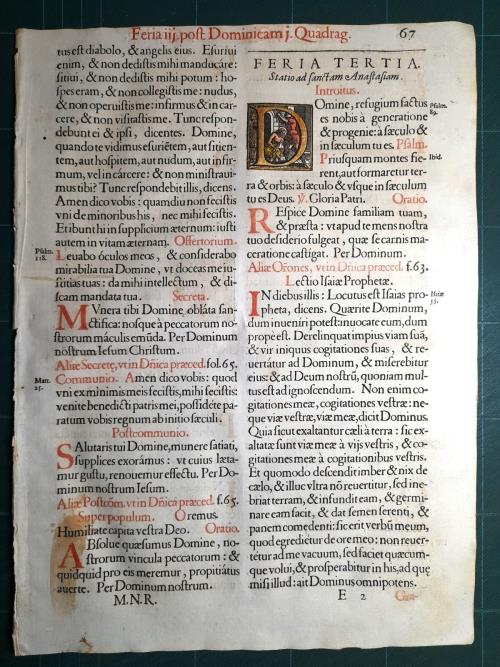 Feria iij. post Dominicam j. Quadrag. 67
tus est diabolo, & angelis eius. Esuriui
enim, & non dedistis mihi manducáre:
sitiui, & non dedistis mihi potum: ho-
spes eram, & non collegistis me: nudus,
& non operuistis me: infirmus & in car-
cere, & non visitastis me. Tunc respon-
debunt ei & ipsi, dicentes. Domine,
quando te vidimus esuriẽtem, aut sitien-
tem, aut hospitem, aut nudum, aut infir-
mum, vel in cárcere: & non ministraui-
mus tibi? Tunc respondebit illis, dicens.
Amen dico vobis: quamdiu non fecistis
vni de minoribus his, nec mihi fecistis.
Et ibunt hi in supplicium æternum: iusti
autem in vitam æternam. Offertorium.
Psalm. 118.
Leuabo óculos meos, & considerabo
mirabilia tua Domine, vt doceas me iu-
stitias tuas: da mihi intellectum, & di-
scam mandata tua. Secreta.
MVnera tibi Domine obláta san-
ctifica: nosque à peccatorum no-
strorum máculis emũda. Per Dominum
nostrum Iesum Christum.
Aliæ Secretę, vt in Dñica præced. fol. 65.
Matt. 25.
Communio. Amen dico vobis: quod
vni ex minimis meis fecistis, mihi fecistis:
venite benedicti patris mei, possidéte pa-
ratum vobis regnum ab initio sæculi.
Postcommunio.
SAlutaris tui Domine, munere satiati,
supplices exorámus: vt cuius læta-
mur gustu, renouemur effectu. Per Do-
minum nostrum Iesum.
Aliæ Postcõm. vt in Dñica præced. f.65.
Super populum. Oremus.
Humiliate capita vestra Deo. Oratio.
ABsolue quæsumus Domine, no-
strorum vincula peccatorum: &
quidquid pro eis meremur, propitiátus
auerte. Per Dominum nostrum.
M.N.R.
FERIA TERTIA.
Statio ad sanctam Anastasiam.
Introitus.
DOmine, refugium factus
Psalm. 89.
es nobis à generatione
& progenie: à sæculo &
in sæculum tu es. Psalm.
Priusquam montes fie-
Ibid.
rent, aut formaretur ter-
ra & orbis: à sæculo & vsque in sæculum
tu es Deus. ℣. Gloria Patri. Oratio.
REspice Domine familiam tuam,
& præsta: vt apud te mens nostra
tuo desiderio fulgeat, quæ se carnis ma-
ceratione castigat. Per Dominum.
Aliæ Orõnes, vt in Dñica præced. f.63.
Lectio Isaiæ Prophetæ.
IN diebus illis: Locutus est Isaias pro-
Isaiæ 55.
pheta, dicens. Quærite Dominum,
dum inueniri potest: inuocate eum, dum
prope est. Derelinquat impius viam suã,
& vir iniquus cogitationes suas, & re-
uertátur ad Dominum, & miserebitur
eius: & ad Deum nostrũ, quoniam mul-
tus est ad ignoscendum. Non enim co-
gitationes meæ, cogitationes vestræ: ne-
que viæ vestræ, viæ meæ, dicit Dominus.
Quia sicut exaltantur cæli à terra: sic ex-
altatæ sunt viæ meæ à vijs vestris, & co-
gitationes meæ à cogitationibus vestris.
Et quomodo descendit imber & nix de
cælo, & illuc vltra nõ reuertitur, sed ine-
briat terram, & infundit eam, & germi-
nare eam facit, & dat semen serenti, &
panem comedenti: sic erit verbũ meum,
quod egredietur de ore meo: non reuer-
tétur ad me vacuum, sed faciet quæcum-
que volui, & prosperabitur in his, ad quę
misi illud: ait Dominus omnipotens.
E 2 Gra-